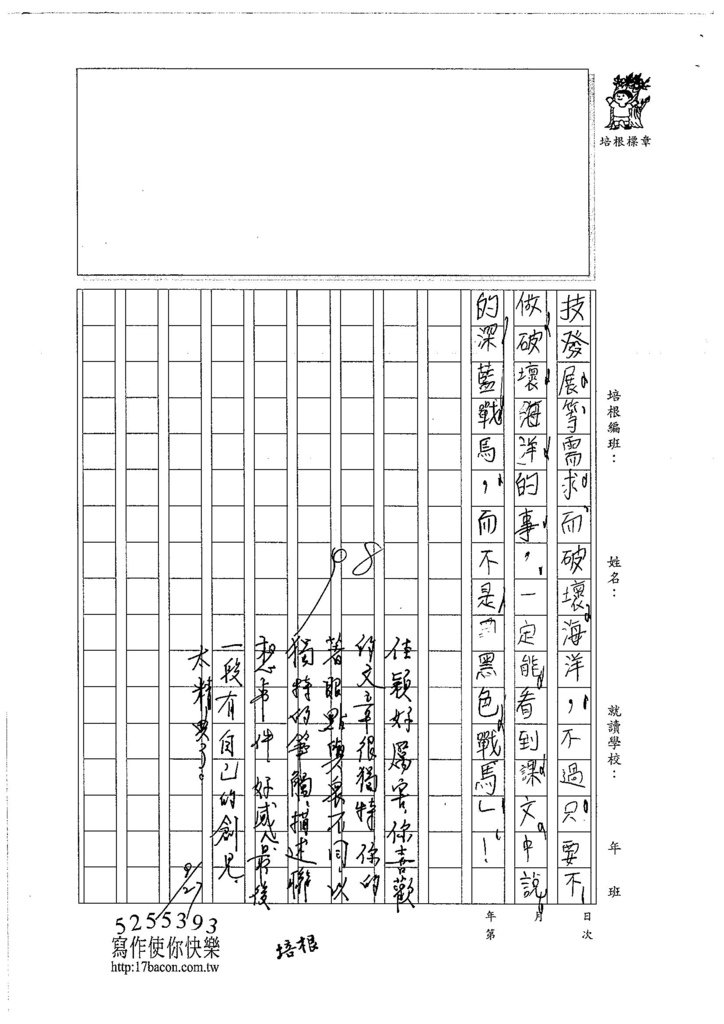 培根標章
培根編班：
姓名：
就讀學校：
年 班
技發展等需求而破壞海洋，不過只要不
做破壞海洋的事，一定能看到課文中說
的深藍戰馬，而不是「黑色戰馬」！
年 月 日
第 次
98
佳穎好厲害你喜歡
的文章很獨特你的
著眼點與眾不同，以
獨特的筆觸，描述聯
想事件，好感。最後
一段有自己的創見，
太精典了。
9/27
培根
5255393
寫作使你快樂
http:17bacon.com.tw